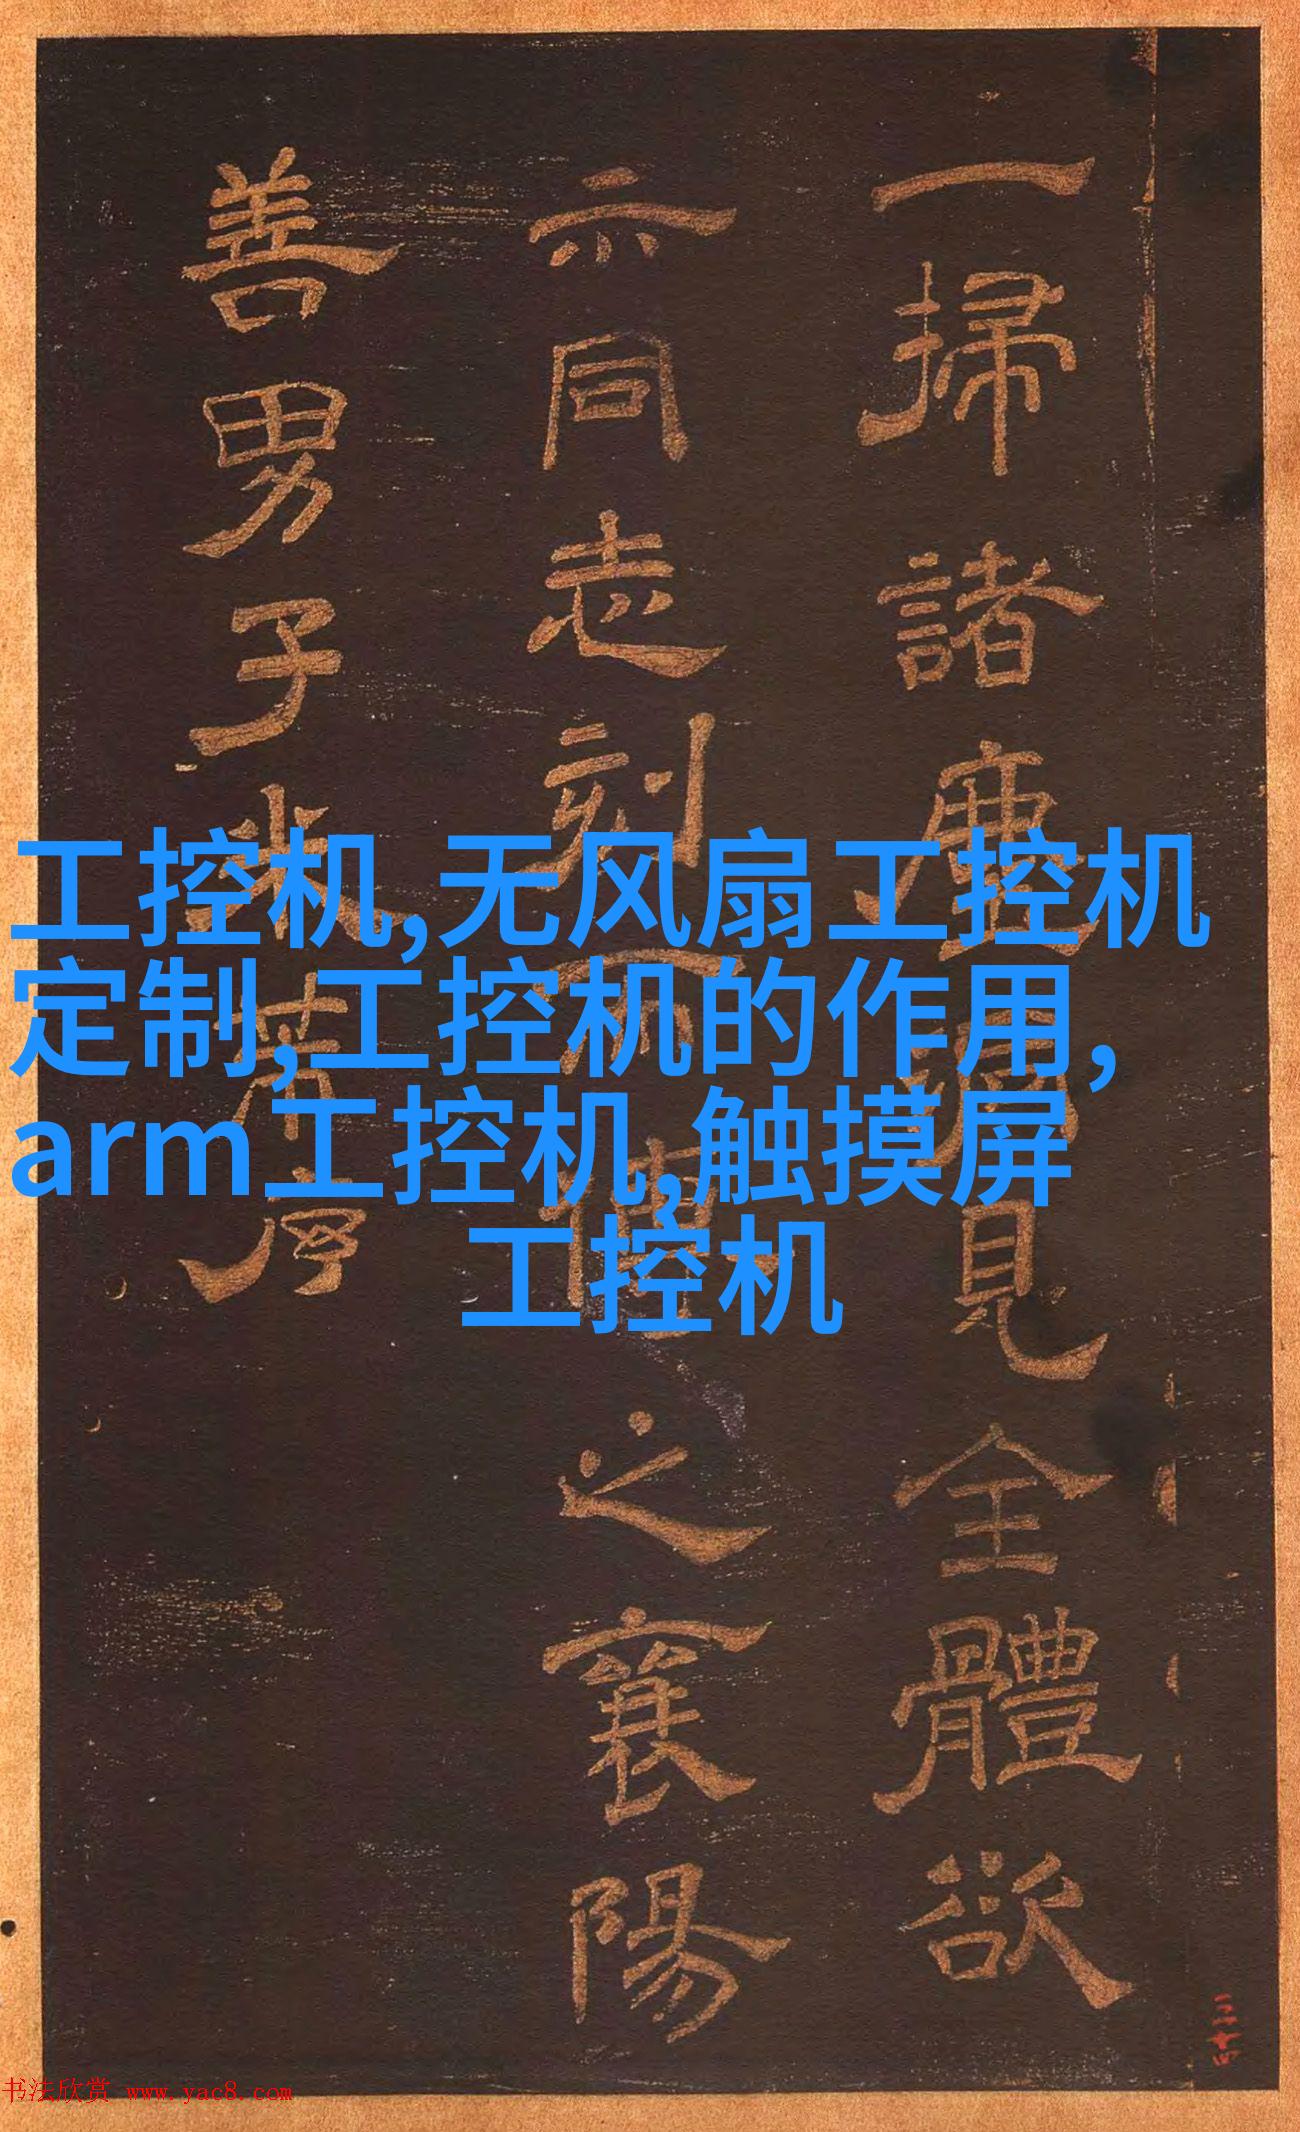 一掃諸塵
見全體欲
示同志刻
之襄陽
善男子
工控机,无风扇工控机
定制,工控机的作用,
arm工控机,触摸屏
工控机
三十四
书法欣赏 www.yac8.com